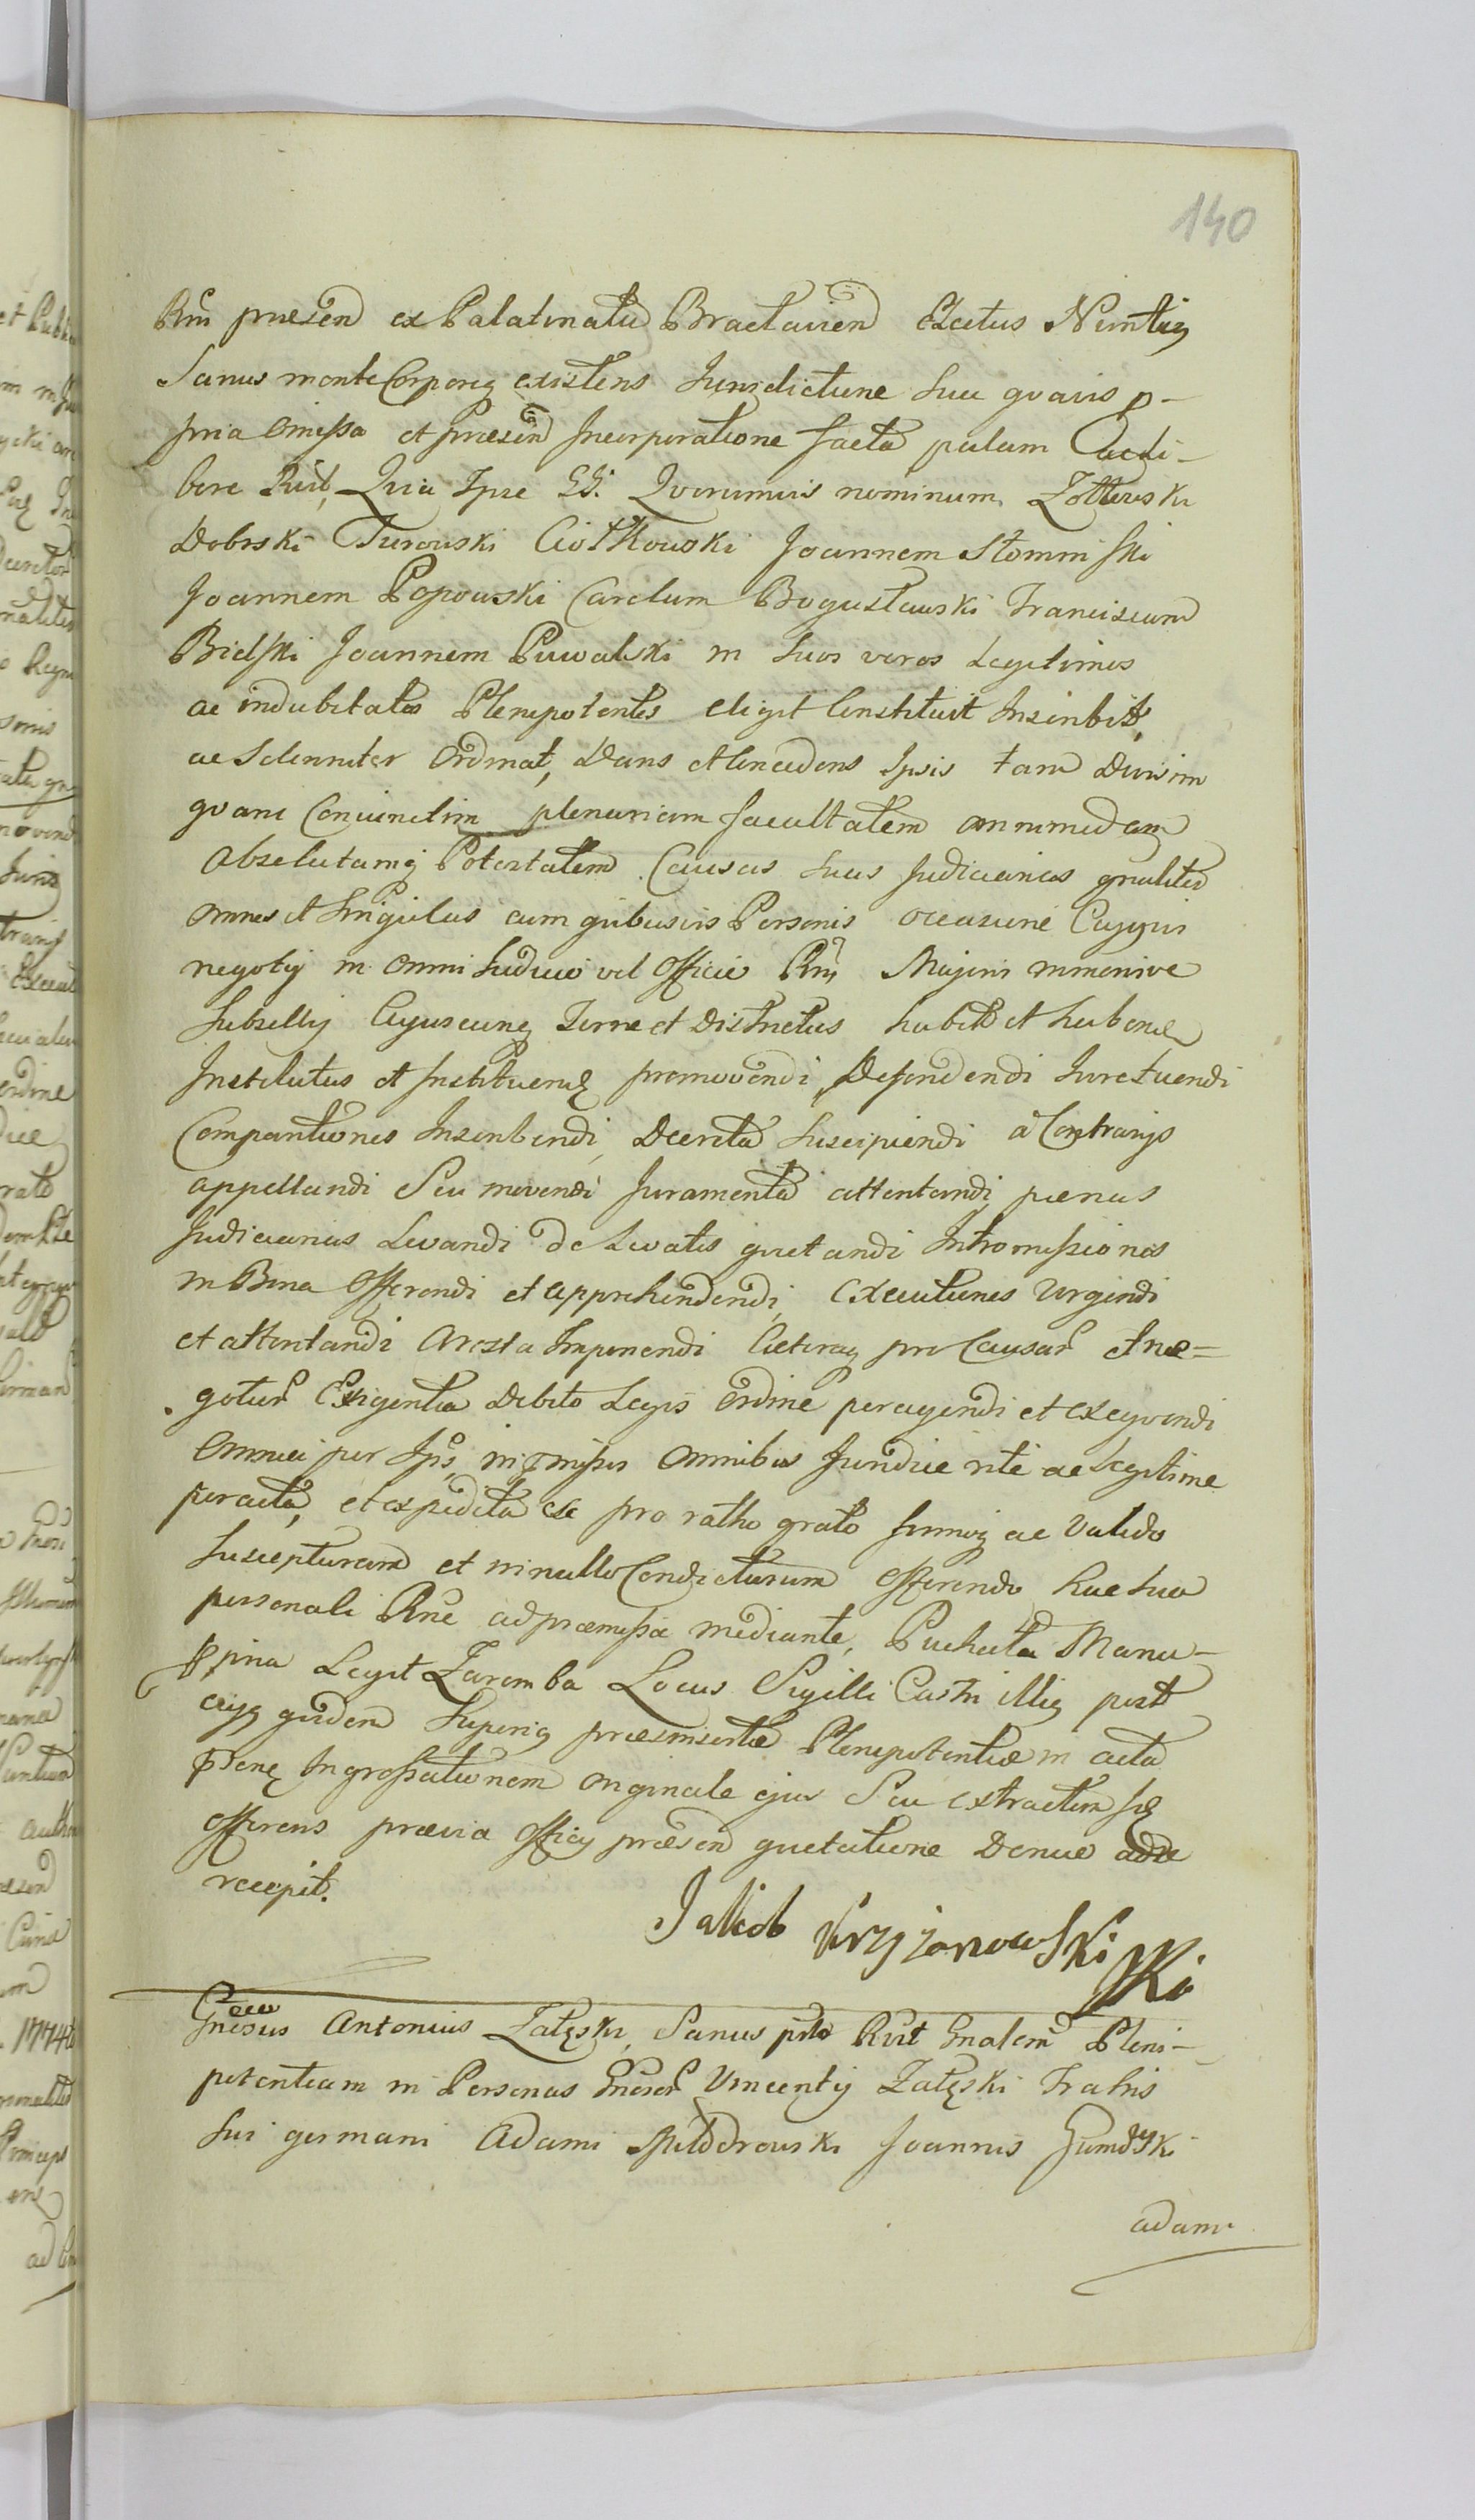 140
Rni praesen ex Palatinatu Braclavien Electus Nuntiq
Sanus mente Corporeq existens Jurisdictione sua qvavis p-
pria omissa et praesen Incorporatione facta palam Ac li-
bere Rvit, Qvia Ipse GG. Qvorumvis nominum Zołtowski
Dobrski Turowski Ciołkowski Joannem Słomniski
Joannem Popowski Carolum Bogusławski Franciscum
Bielski Joannem Puwalski in suos veros Legitimos
ac indubitatos Plenipotentes eligit Constituit Inscribit,
ac Solenniter Ordinat, Dans et Concedens Ipsis tam Divisim
qvam Coniunctim plenariam facultatem omnimodam
Absolutamq Potestatem Causas suas Judiciarias gnaliter
omnes et singulas cum qvibusvis Personis occasione Cujusvis
negotij in omni Judicio vel Officio Rni Majoris minorisve
Subsellij Cujuscunq Terrae et Districtus habit et habend
Institutas et Instituend promovendi Defendendi Jure tuendi
Comparitiones Inscribendi, Decreta Suscipiendi a Contrarijs
appellandi Seu movendi Juramenta attentandi paenas
Judiciarias Levandi de Levatis qvietandi Intromissiones
in Bona Offerendi et apprehendendi, Executiones Urgendi
et attentandi Aresta Imponendi Caeteraq pro Causar et ne=
gotior Exigentia Debito Legis ordine peragendi et exeqvendi
Omnia per Ips, in pmissis Omnibus Juridice rite ac Legitime
peracta, et expedita se pro ratho grato firmoq ac Valido
Suscepturum et in nullo Condicturum Offerendo hac sua
personali Rne ad praemissa mediante, Puchała Manu-
ppria Legit Zaremba Locus Sigilli Castri illiq post
cujq qvidem Superiq praeinsertae Plenipotentiae in acta
psenq Ingrossationem originale ejus Seu extractum sq
offerens praevia Officij praesen qvietatione Denuo ad se
recepit.
Jakob Krzyżanowski
Gnosus Antonius Załęski, Sanus prto Rvit Gnalem Pleni-
potentiam in Personas Gnosor Vincentij Załęski Fratris
sui germani Adami Joannis Gumoski
adami